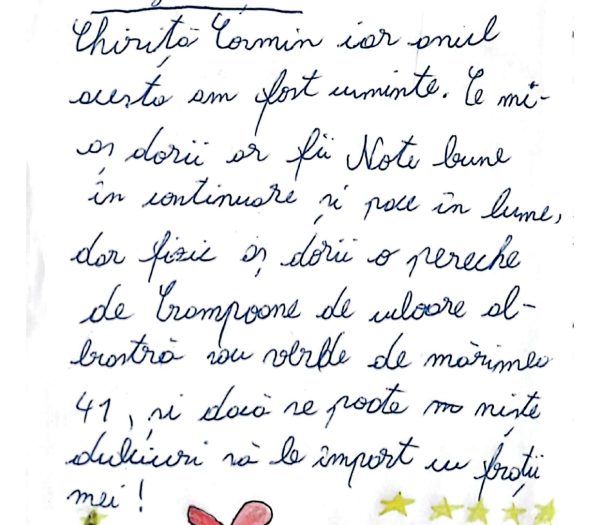 Chiriță Cosmin iar anul
acesta am fost cuminte. Ce mi-
aș dorii ar fii Note bune
în continuare și pace în lume,
dar fizic aș dorii o pereche
de Crampoane de culoare al-
bastră sau verde de mărimea
41, și dacă se poate niște
dulciuri să le împart cu frații
mei!